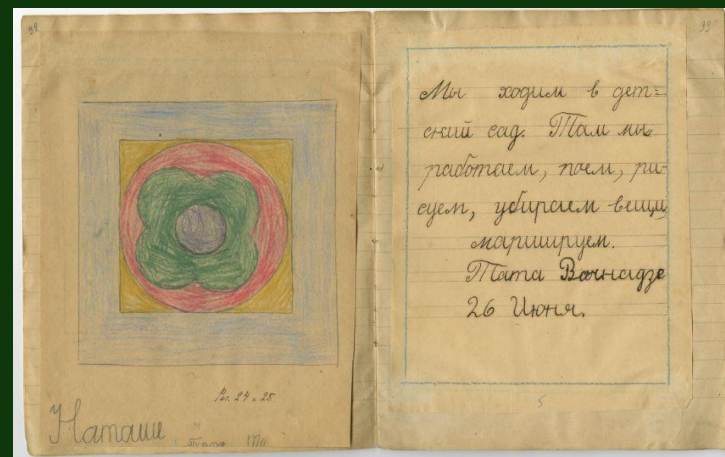 32
Рис. 24 - 25.
Наташи
33
Мы ходим в дет=
ский сад. Там мы
работаем, поем, ри-
суем, убираем вещи
маршируем.
Тата Вачнадзе
26 Июня.
5